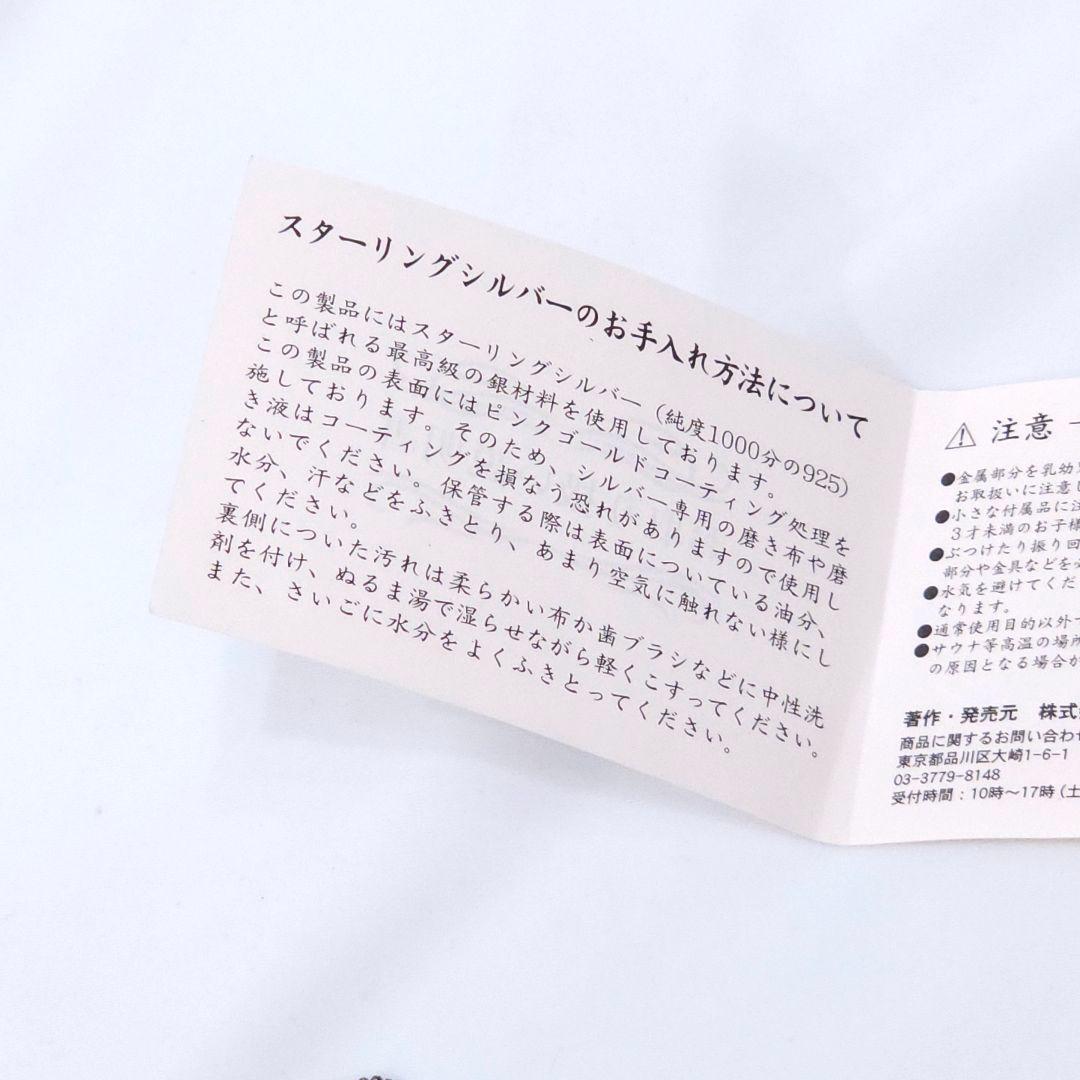 スターリングシルバーのお手入れ方法について
この製品にはスターリングシルバー（純度1000分の925）
と呼ばれる最高級の銀材料を使用しております。
この製品の表面にはピンクゴールドコーティング処理を
施しております。そのため、シルバー専用の磨き布や磨
き液はコーティングを損なう恐れがありますので使用し
ないでください。保管する際は表面についている油分、
水分、汗などをふきとり、あまり空気に触れない様にし
てください。
裏側についた汚れは柔らかい布か歯ブラシなどに中性洗
剤を付け、ぬるま湯で湿らせながら軽くこすってください。
また、さいごに水分をよくふきとってください。
⚠ 注意
●金属部分を乳幼
お取扱いに注意し
●小さな付属品に注
３才未満のお子様
●ぶつけたり振り回
部分や金具などを
●水気を避けてくだ
なります。
●通常使用目的以外
●サウナ等高温の場所
の原因となる場合が
著作・発売元 株式
商品に関するお問い合わせ
東京都品川区大崎1-6-1
03-3779-8148
受付時間：10時〜17時（土